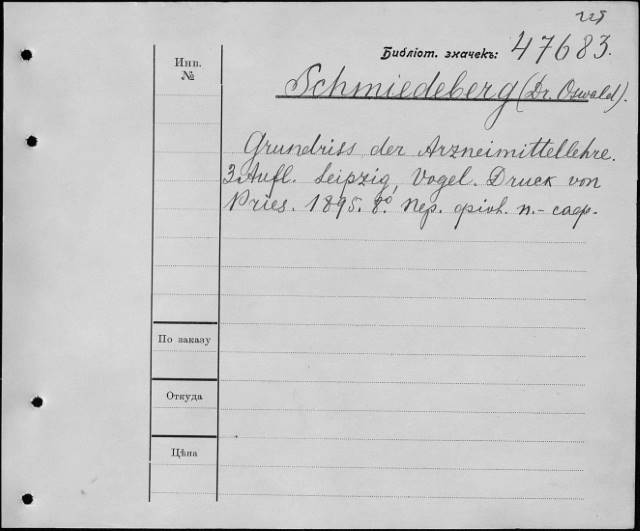 225
Библіот. значекъ: 47683.
Инв.
№
Schmiedeberg (Dr. Oswald).
Grundriss der Arzneimittellehre.
3 Aufl. Leipzig, Vogel. Druck von
Pries. 1895. 8º. Пер. фіол. п.-сафр.
По заказу
Откуда
Цѣна